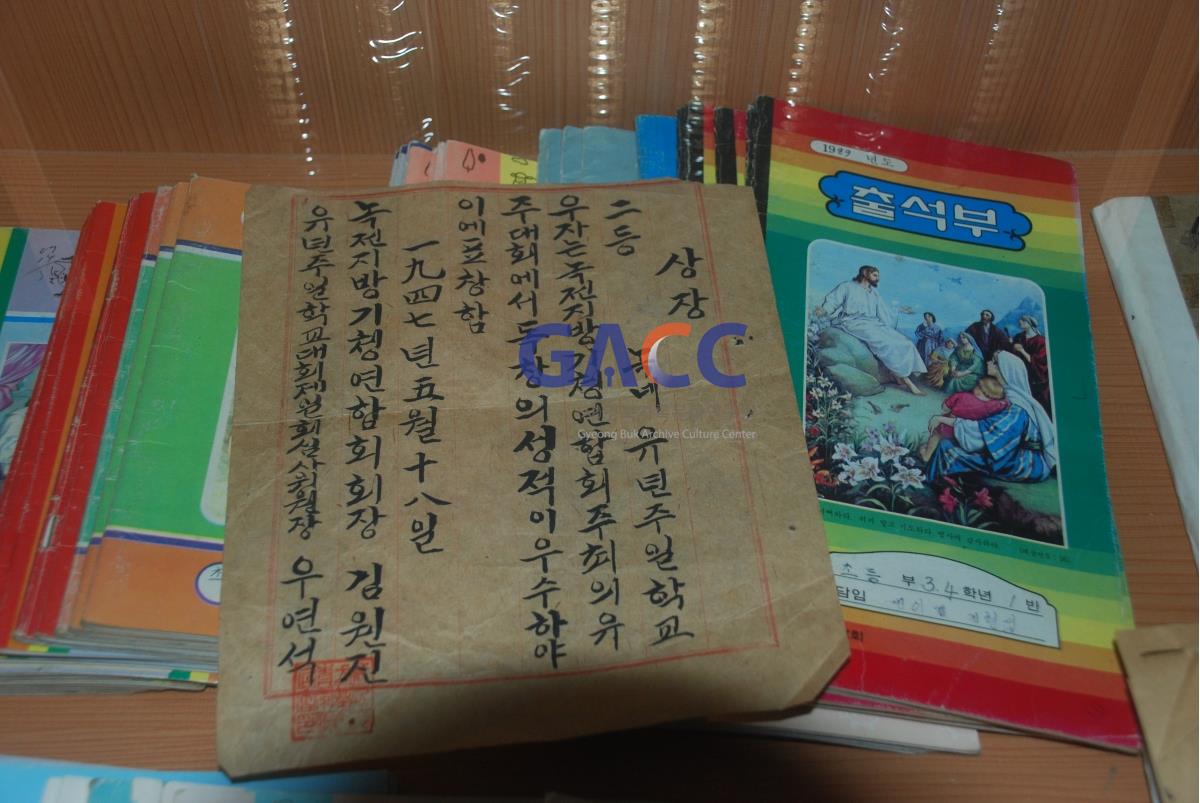 상장
二등
유년주일학교
우자는녹전지방기청연합회주최의유
주대회에서두창의성적이우수하야
이에표창함
一九四七년五월十八일
녹전지방기청연합회장 김원진
유년주일학교대회 우연석
GACC
Gyeong Buk Archive Culture Center
1989 년도
출석부
쉬지 말고 기도하라. 범사에 감사하라.
초등 부 3.4 학년 1 반
담임